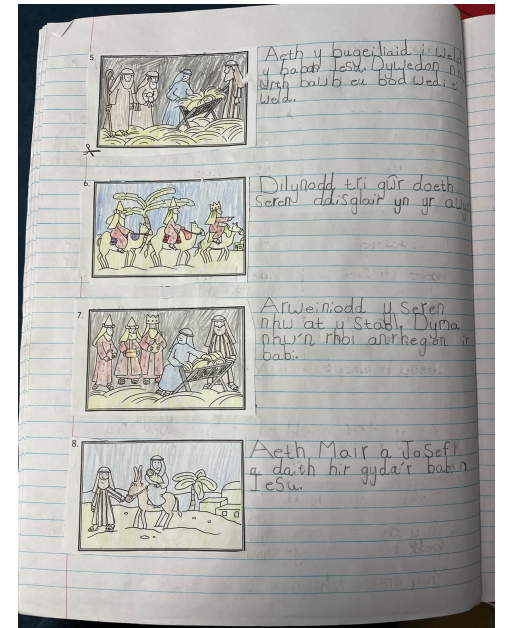 5.
Aeth y bugeiliaid i weld
y baban Iesu. Dywedon nhw
wrth bawb eu bod wedi ei
weld.
6.
Dilynodd tri gŵr doeth
seren ddisglair yn yr awyr
7.
Arweiniodd y seren
nhw at y stabl. Dyma
nhw'n rhoi anrhegion i'r
babi.
8.
Aeth Mair a Josef
a daith hir gyda'r baban
Iesu.